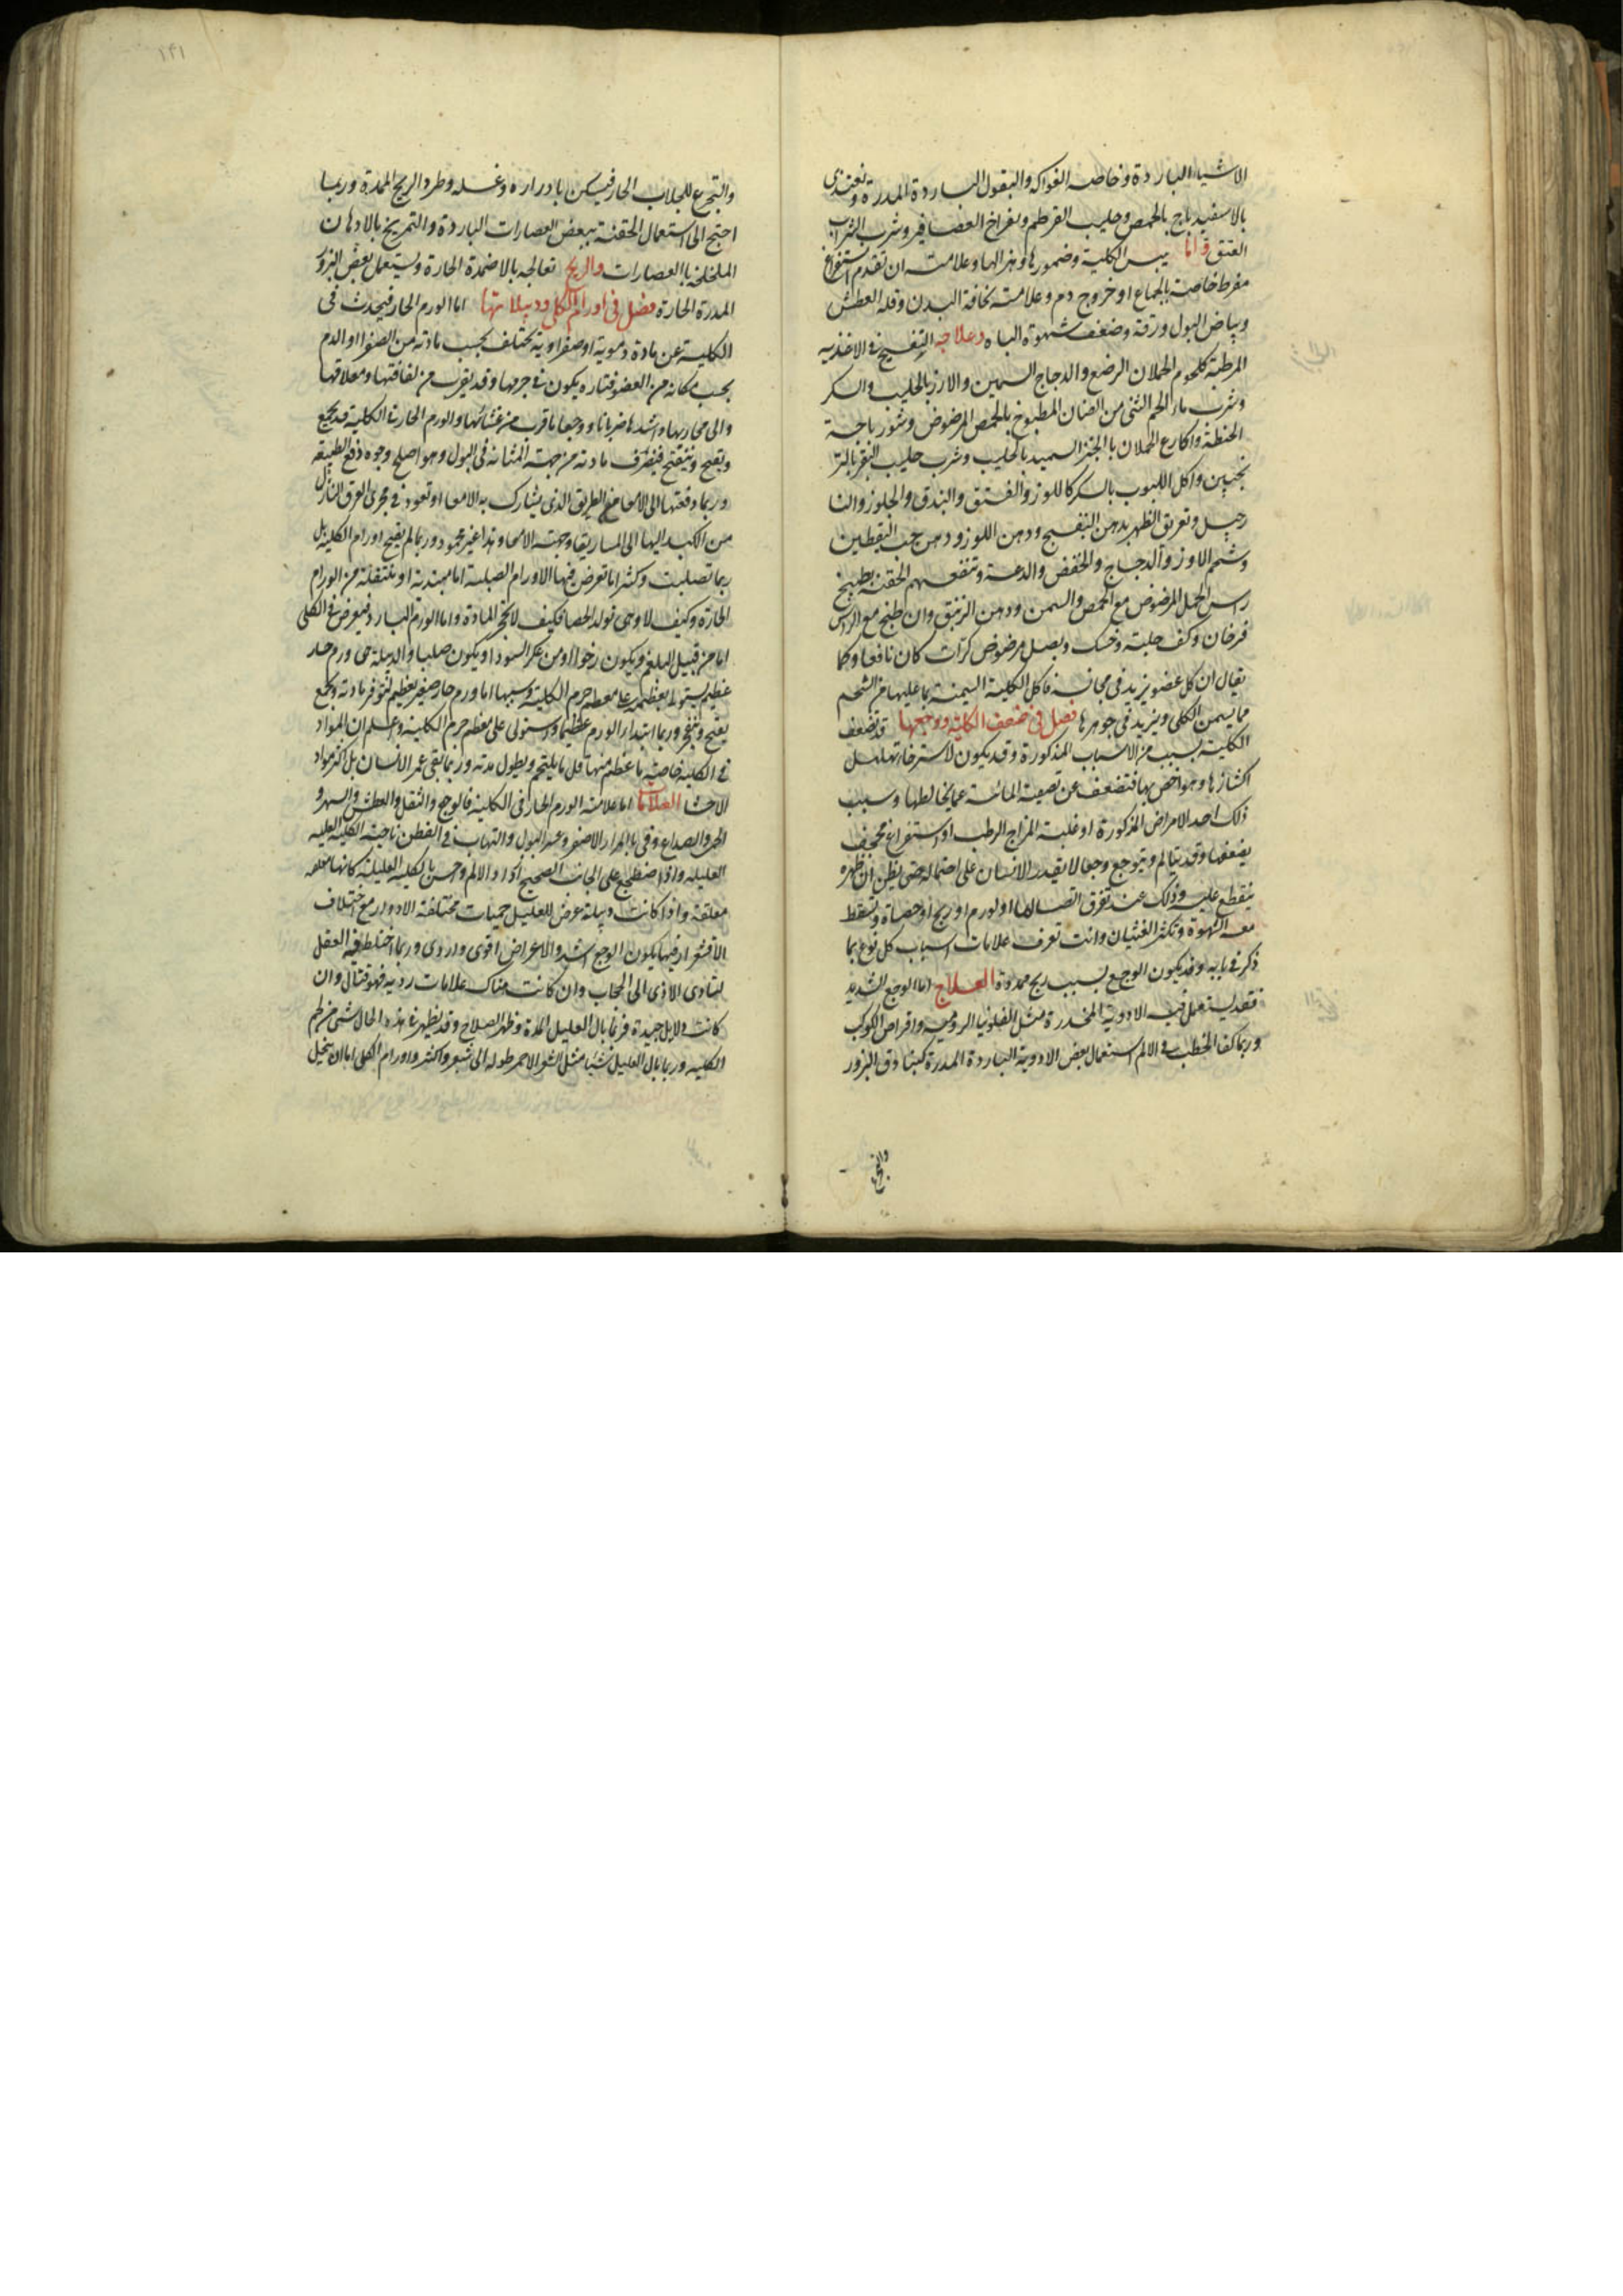 الاشياء الباردة وخاصه الفواكه والبقول الباردة المدرة وتغتذى
بالاسفيدباج بالحمص وحليب القرطم وبفراخ العصافير وشرب الشراب
العتق واما يبس الكلية وضمورها وهزالها وعلامته ان تقدم استفراغ
مفرط خاصة بالجماع او خروج دم وعلامته نحافة البدن وقله العطش
وبياض البول ورقته وضعف شهوة الباه وعلاجه التفسيح فى الاغذيه
المرطبة كلحوم الحملان الرضع والدجاج السمين والارز بالحليب والسكر
وشرب ماء اللحم الثنى من الضان المطبوخ بالحمص المرضوض وشورباجة
الحنطة واكارع الحملان بالخبز السميد بالحليب وشرب حليب البقر بالتر
نجبين واكل اللبوب بالسكر كاللوز والفستق والبندق والجلوز والنا
رجيل وتعريق الظهر بدهن البنفسج ودهن اللوز ودهن حب اليقطين
وشحم الاوز والدجاج والخفض والدعة وتنفعهم الحقنة بطبيخ
راس الحمل المرضوض مع الحمص والسمن ودهن الزنبق وان طبخ مع الراس
فرخان وكف حلبة وخسك وبصل مرضوض كراث كان نافعا وكما
يقال ان كل عضو يزيد فى مجانسه فاكل الكلية السمينة بما عليها من الشحم
مما يسمن الكلى ويزيد فى جوهرها فصل فى ضعف الكلية ووجعها قد تضعف
الكلية بسبب من الاسباب المذكورة وقد يكون لاسترخاء تهلهل
اكتنازها وهو اخص بها فتضعف عن تصفية المائية عما يخالطها وسبب
ذلك احد الامراض المذكورة او غلبة المزاج الرطب او استفراغ مجحف
يضعفها وقد يتالم ويتوجع وجعا لا يقدر الانسان على احتماله حتى يظن ان ظهره
ينقطع عليه وذلك عند تفرق اتصالها او لورم او ريح او حصاة وتسقط
معه الشهوة وتكثر الغثيان وانت تعرف علامات اسباب كل نوع بما
ذكر فى بابه وقد يكون الوجع بسبب ريح ممددة العلاج اما الوجع الشديد
فقد يستعمل فيه الادوية المخدرة مثل الفلونيا الرومية واقراص الكوكب
وربما كفا الخطب فى الالم استعمال بعض الادوية الباردة المدرة كبنادق البزور
والتجرع
والتجرع للجلاب الحار فيسكن بادراره وغسله وطرد الريح الممدة وربما
احتج الى استعمال الحقنة ببعض العصارات الباردة والتمريخ بالادهان
الملخلخة بالعصارات والريح تعالجه بالاضمدة الحارة ويستعمل بعض البزور
المدرة الحارة فصل فى اورام الكلى ودبيلاتها اما الورم الحار فيحدث فى
الكلية عن مادة دموية او صفراوية يختلف بحسب مادته من الصفرا او الدم
بحسب مكانه من العضو فتاره يكون فى جرمها وقد يقرب من لفافتها ومعلاقها
والى مجاريها واشدها ضربانا ووجعا ما قرب من غشائها والورم الحار فى الكلية قد يجمع
ويقيح وينفتح فينصرف مادته من جهة المثانة فى البول وهو اصلح وجوه دفع الطبيعة
وربما دفعتها الى الامعا فى الطريق الذى يشارك به الامعا او تعود فى مجرى العرق النازل
من الكبد اليها الى الماساريقا وجهة الامعا وهذا غير محمود وربما لم يقيح اورام الكلية بل
ربما تصلبت وكثيرا ما تعرض فيها الاورام الصلبة اما مبتدئة او منتقلة من الورام
الحارة وكيف لا وهى تولد الحصا فكيف لا تحجر المادة واما الورم البارد فيعرض فى الكلى
اما من قبيل البلغم ويكون رخوا او من عكر السودا ويكون صلبا والدبيلة هى ورم حار
عظيم يستولى بعظمه على معظم جرم الكلية وسببها اما ورم حار صغير يعظم لتوفر مادته وتجمع
يقيح وينفجر وربما ابتدا الورم عظيما واستولى على معظم جرم الكلية واعلم ان المواد
فى الكلية خاصة ما عظم منها قل ما يلتحم ويطول مدته وربما تبقى عمر الانسان بل اكثر مواد
الاحشا العلامات اما علامة الورم الحار فى الكلية فالوجع والثقل والعطش والسهر و
الحمى والصداع وقى بالمرار الاصفر وعسر البول والتهاب فى القطن ناحية الكلية العليه
العليله واذا اضطجع على الجانب الصحيح ازداد الالم وحس بالكلية العليلة كانها معلقه
معلقة واذا كانت دبيلة عرض للعليل حميات مختلفة الادوار مع اختلاف
الاقشعرار فيها يكون الوجع اشد والاعراض اقوى واردى وربما اختلط فيه العقل
لتادى الاذى الى الحجاب وان كانت هناك علامات ردئه فهو قتال وان
كانت دلايل جيدة فربما بال العليل المدة وظهر الصلاح وقد يظهر فى هذه الحال شى من لحم
الكليه وربما بال العليل شيا مثل الشعر الاحمر طوله الى شبر واكثر واورام الكلى اما ان يخيل